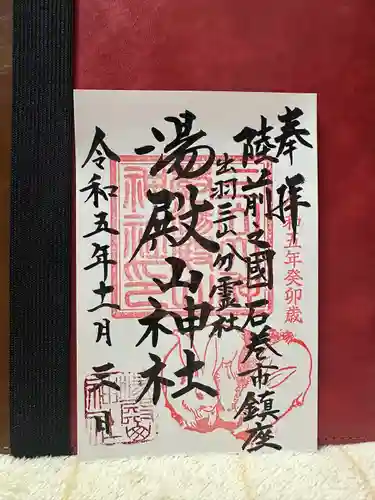 奉拝
陸前之國石巻市鎮座
出羽三山分霊社
湯殿山神社
令和五年十一月二日
令和五年癸卯歳